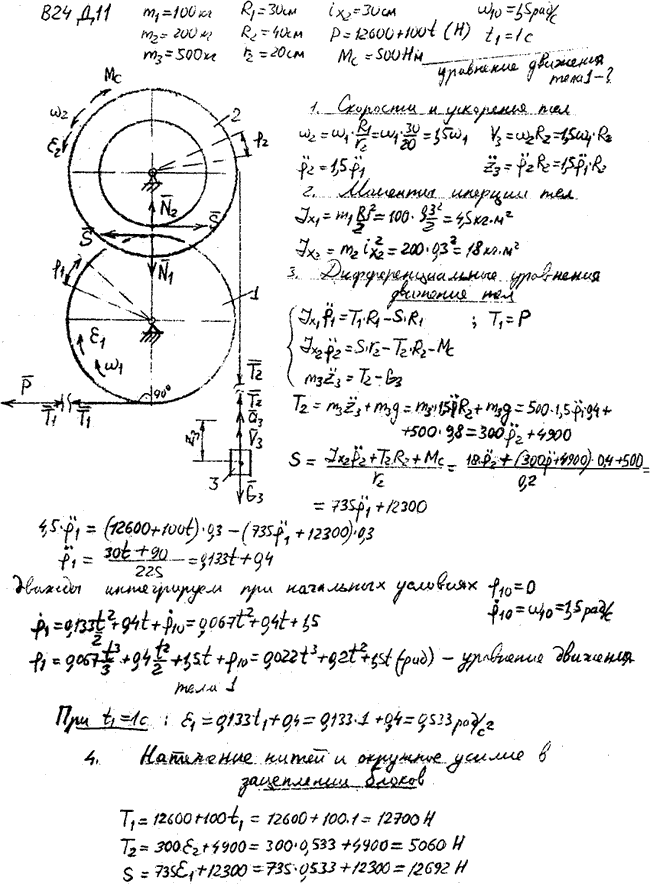 В24 Д11 m₁=100кг R₁=30см iₓ₂=30см ω₁₀=1,5рад/с
m₂=200кг R₂=40см P=12600+100t (Н) t₁=1с
m₃=500кг r₂=20см Mc=500Нм уравнение движения тела 1-?
Mc
ω₂
ε₂
2
φ₂
N̄₂
S̄
S̄
N̄₁
φ₁
1
ε₁
ω₁
P̄
T̄₁
T̄₁
90°
T̄₂
T̄₂
ā₃
V̄₃
3
Ḡ₃
1. Скорости и ускорения тел
ω₂=ω₁·R₁/r₂=ω₁·30/20=1,5ω₁ V₃=ω₂R₂=1,5ω₁·R₂
φ̈₂=1,5φ̈₁ z̈₃=φ̈₂R₂=1,5φ̈₁·R₂
2. Моменты инерции тел
Jx₁=m₁R₁²/2=100·0,3²/2=4,5кг.м²
Jx₂=m₂iₓ₂²=200·0,3²=18кг.м²
3. Дифференциальные уравнения
движения тел
Jx₁φ̈₁=T₁·R₁-S·R₁ ; T₁=P
Jx₂φ̈₂=S·r₂-T₂·R₂-Mc
m₃z̈₃=T₂-G₃
T₂=m₃z̈₃+m₃g=m₃·1,5φ̈R₂+m₃g=500·1,5φ̈·0,4+
+500·9,8=300φ̈₂+4900
S=(Jx₂φ̈₂+T₂R₂+Mc)/r₂=(18φ̈₂+(300φ̈+4900)·0,4+500)/0,2=
=735φ̈₁+12300
4,5·φ̈₁=(12600+100t)·0,3-(735φ̈₁+12300)·0,3
φ̈₁=(30t+90)/225=0,133t+0,4
Дважды интегрируем при начальных условиях φ₁₀=0
φ̇₁₀=ω₁₀=1,5рад/с
φ̇₁=0,133t²/2+0,4t+φ̇₁₀=0,067t²+0,4t+1,5
φ₁=0,067t³/3+0,4t²/2+1,5t+φ₁₀=0,022t³+0,2t²+1,5t(рад) – уравнение движения
тела 1
При t₁=1с : ε₁=0,133t₁+0,4=0,133·1+0,4=0,533рад/с²
4. Натяжение нитей и окружное усилие в
зацеплении блоков
T₁=12600+100t₁=12600+100·1=12700Н
T₂=300ε₂+4900=300·0,533+4900=5060Н
S=735ε₁+12300=735·0,533+12300=12692Н